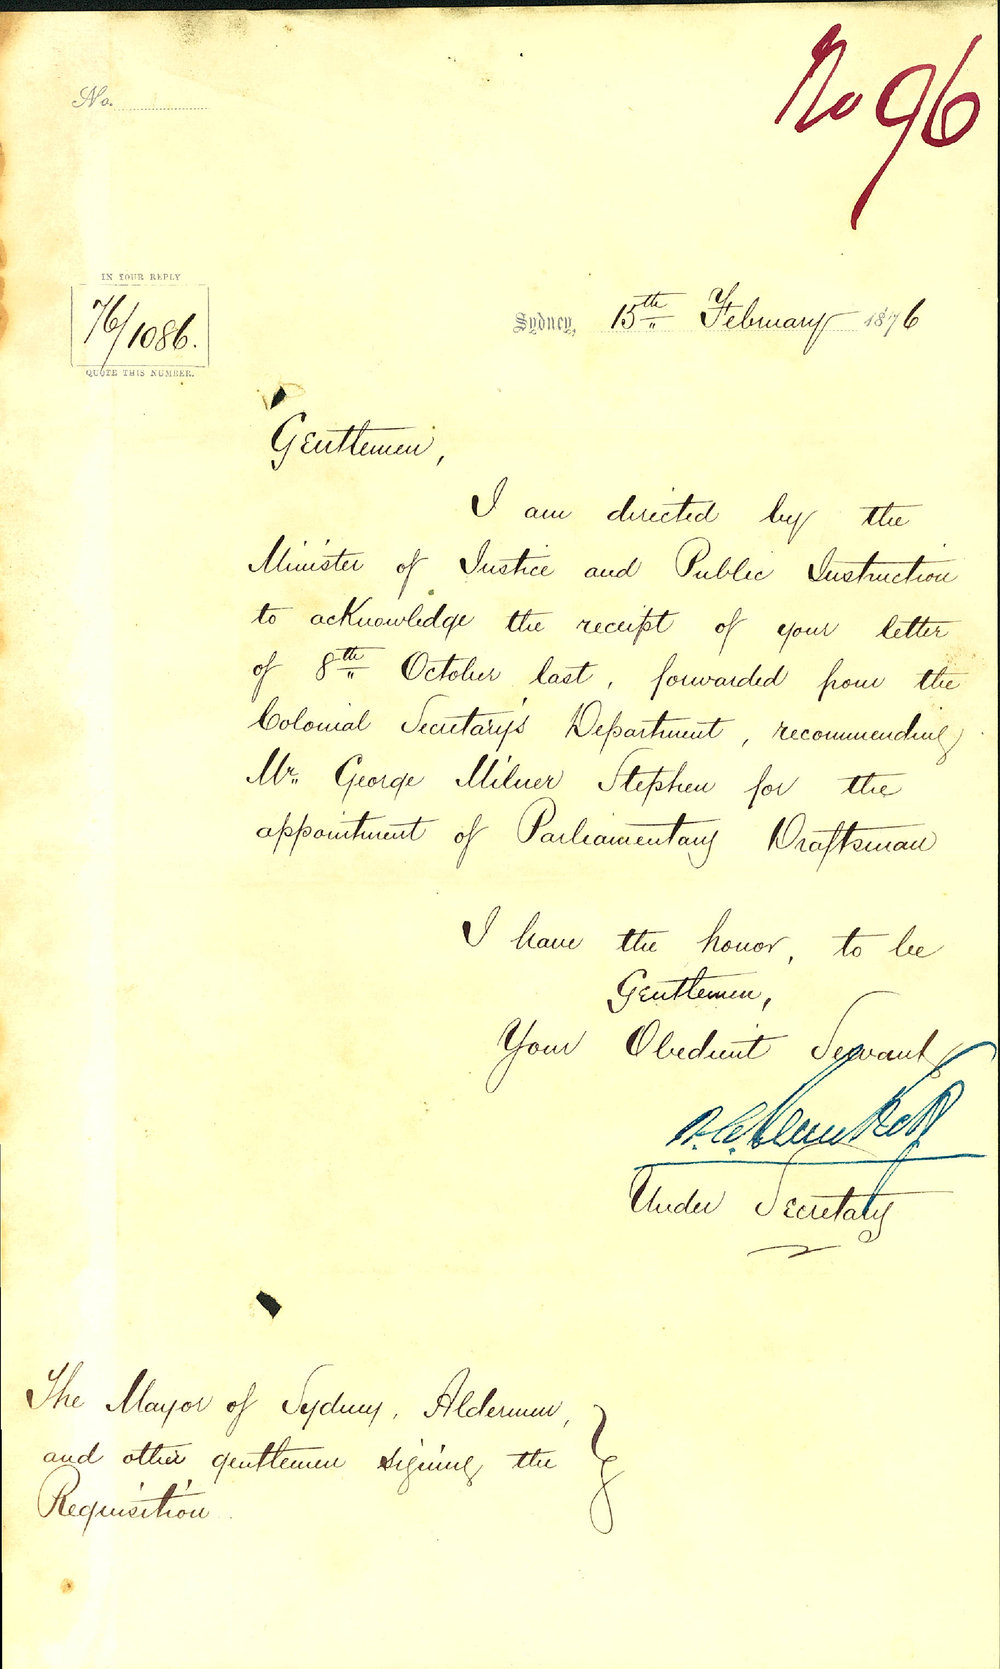 No.
No 96
IN YOUR REPLY
76/1086.
QUOTE THIS NUMBER.
Sydney, 15th February 1876
Gentlemen,
I am directed by the
Minister of Justice and Public Instruction
to acknowledge the receipt of your letter
of 8th October last, forwarded from the
Colonial Secretary's Department, recommending
Mr. George Milner Stephen for the
appointment of Parliamentary Draftsman
I have the honor, to be
Gentlemen,
Your Obedient Servant
Under Secretary
The Mayor of Sydney, Aldermen,
and other gentlemen signing the
Requisition.